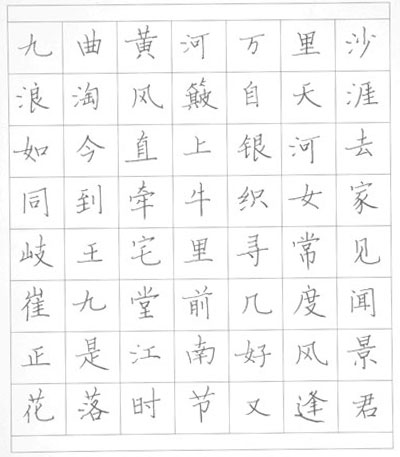 九曲黄河万里沙
浪淘风簸自天涯
如今直上银河去
同到牵牛织女家
岐王宅里寻常见
崔九堂前几度闻
正是江南好风景
花落时节又逢君